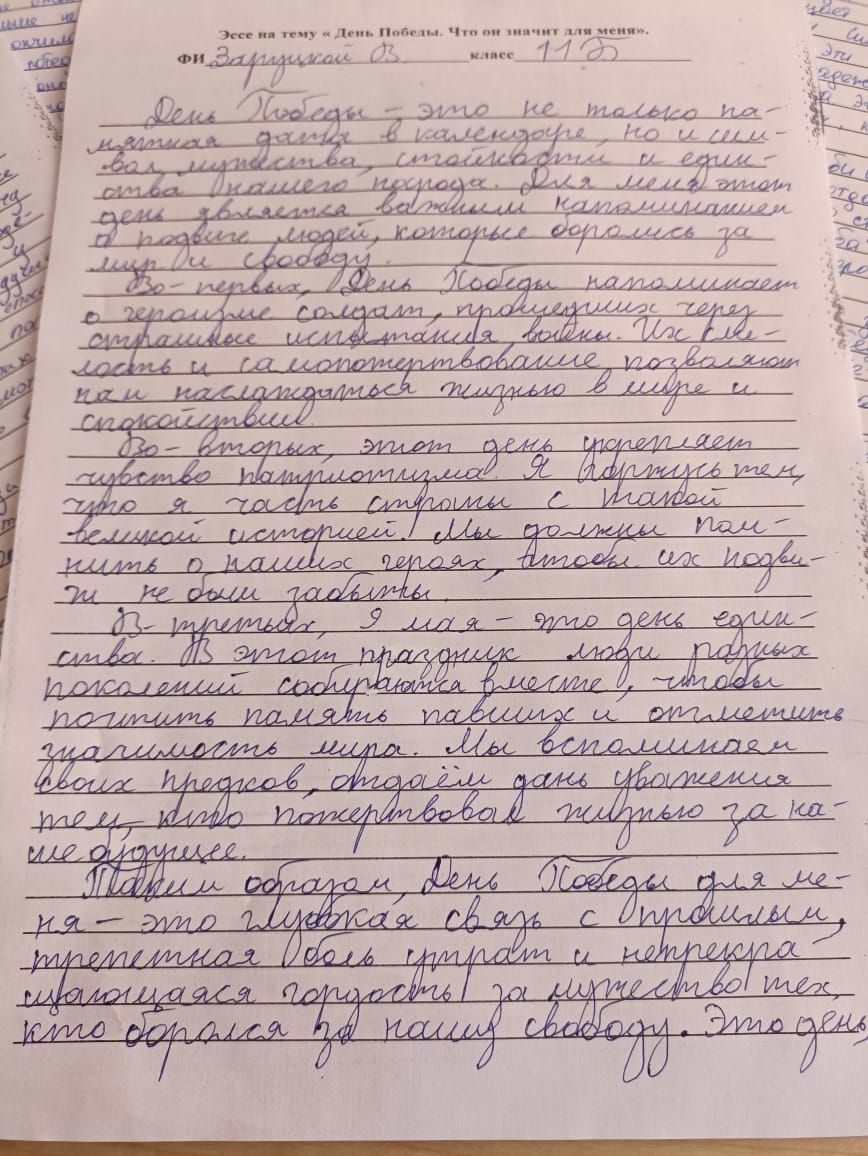 Эссе на тему « День Победы. Что он значит для меня».
ФИ Заруцкой В. класс 11 Б
День Победы – это не только па-
мятная дата в календаре, но и сим-
вол мужества, стойкости и един-
ства нашего народа. Для меня этот
день является важным напоминанием
о подвиге людей, которые боролись за
мир и свободу.
Во-первых, День Победы напоминает
о героизме солдат, прошедших через
страшные испытания войны. Их сме-
лость и самопожертвование позволяют
нам наслаждаться жизнью в мире и
спокойствии.
Во-вторых, этот день укрепляет
чувство патриотизма. Я горжусь тем,
что я часть страны с такой
великой историей. Мы должны пом-
нить о наших героях, чтобы их подви-
ги не были забыты.
В-третьих, 9 мая – это день един-
ства. В этот праздник люди разных
поколений собираются вместе, чтобы
почтить память павших и отметить
значимость мира. Мы вспоминаем
своих предков, отдаём дань уважения
тем, кто пожертвовал жизнью за на-
ше будущее.
Таким образом, День Победы для ме-
ня – это глубокая связь с прошлым,
трепетная боль утрат и непрекра-
щающаяся гордость за мужество тех,
кто боролся за нашу свободу. Это день,